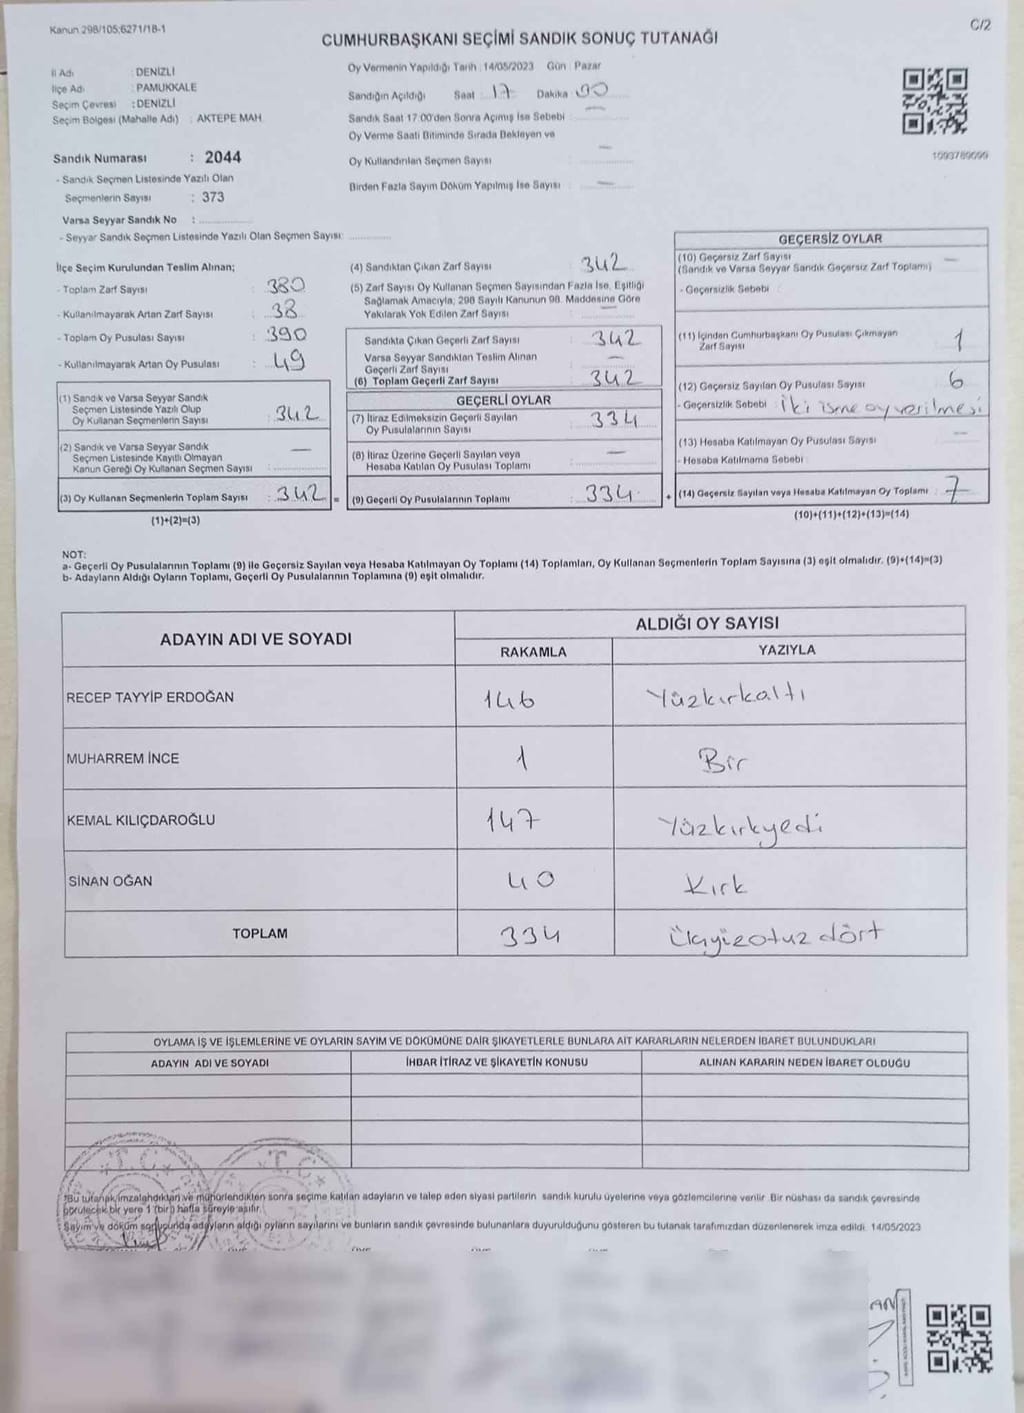 Kanun 298/105;6271/18-1
C/2
CUMHURBAŞKANI SEÇİMİ SANDIK SONUÇ TUTANAĞI
İl Adı : DENİZLİ
İlçe Adı : PAMUKKALE
Seçim Çevresi : DENİZLİ
Seçim Bölgesi (Mahalle Adı) : AKTEPE MAH.
Sandık Numarası : 2044
- Sandık Seçmen Listesinde Yazılı Olan
Seçmenlerin Sayısı : 373
Varsa Seyyar Sandık No :
- Seyyar Sandık Seçmen Listesinde Yazılı Olan Seçmen Sayısı:
Oy Vermenin Yapıldığı Tarih : 14/05/2023 Gün : Pazar
Sandığın Açıldığı Saat : 17 Dakika : 00
Sandık Saat 17:00'den Sonra Açılmış İse Sebebi : —
Oy Verme Saati Bitiminde Sırada Bekleyen ve
Oy Kullandırılan Seçmen Sayısı : —
Birden Fazla Sayım Döküm Yapılmış İse Sayısı : —
1093789099
İlçe Seçim Kurulundan Teslim Alınan;
- Toplam Zarf Sayısı : 380
- Kullanılmayarak Artan Zarf Sayısı : 38
- Toplam Oy Pusulası Sayısı : 390
- Kullanılmayarak Artan Oy Pusulası : 49
(1) Sandık ve Varsa Seyyar Sandık
Seçmen Listesinde Yazılı Olup
Oy Kullanan Seçmenlerin Sayısı : 342
(2) Sandık ve Varsa Seyyar Sandık
Seçmen Listesinde Kayıtlı Olmayan
Kanun Gereği Oy Kullanan Seçmen Sayısı : —
(3) Oy Kullanan Seçmenlerin Toplam Sayısı : 342 =
(1)+(2)=(3)
(4) Sandıktan Çıkan Zarf Sayısı : 342
(5) Zarf Sayısı Oy Kullanan Seçmen Sayısından Fazla İse, Eşitliği
Sağlamak Amacıyla, 298 Sayılı Kanunun 98. Maddesine Göre
Yakılarak Yok Edilen Zarf Sayısı : —
Sandıkta Çıkan Geçerli Zarf Sayısı : 342
Varsa Seyyar Sandıktan Teslim Alınan
Geçerli Zarf Sayısı : —
(6) Toplam Geçerli Zarf Sayısı : 342
GEÇERLİ OYLAR
(7) İtiraz Edilmeksizin Geçerli Sayılan
Oy Pusulalarının Sayısı : 334
(8) İtiraz Üzerine Geçerli Sayılan veya
Hesaba Katılan Oy Pusulası Toplamı : —
(9) Geçerli Oy Pusulalarının Toplamı : 334 +
GEÇERSİZ OYLAR
(10) Geçersiz Zarf Sayısı : —
(Sandık ve Varsa Seyyar Sandık Geçersiz Zarf Toplamı)
- Geçersizlik Sebebi :
(11) İçinden Cumhurbaşkanı Oy Pusulası Çıkmayan
Zarf Sayısı : 1
(12) Geçersiz Sayılan Oy Pusulası Sayısı : 6
- Geçersizlik Sebebi : İki isme oy verilmesi
(13) Hesaba Katılmayan Oy Pusulası Sayısı : —
- Hesaba Katılmama Sebebi :
(14) Geçersiz Sayılan veya Hesaba Katılmayan Oy Toplamı : 7
(10)+(11)+(12)+(13)=(14)
NOT:
a- Geçerli Oy Pusulalarının Toplamı (9) ile Geçersiz Sayılan veya Hesaba Katılmayan Oy Toplamı (14) Toplamları, Oy Kullanan Seçmenlerin Toplam Sayısına (3) eşit olmalıdır. (9)+(14)=(3)
b- Adayların Aldığı Oyların Toplamı, Geçerli Oy Pusulalarının Toplamına (9) eşit olmalıdır.
ADAYIN ADI VE SOYADI
ALDIĞI OY SAYISI
RAKAMLA YAZIYLA
RECEP TAYYİP ERDOĞAN 146 Yüzkırkaltı
MUHARREM İNCE 1 Bir
KEMAL KILIÇDAROĞLU 147 Yüzkırkyedi
SİNAN OĞAN 40 Kırk
TOPLAM 334 Üçyüzotuz dört
OYLAMA İŞ VE İŞLEMLERİNE VE OYLARIN SAYIM VE DÖKÜMÜNE DAİR ŞİKAYETLERLE BUNLARA AİT KARARLARIN NELERDEN İBARET BULUNDUKLARI
ADAYIN ADI VE SOYADI İHBAR İTİRAZ VE ŞİKAYETİN KONUSU ALINAN KARARIN NEDEN İBARET OLDUĞU
T.C. T.C.
*Bu tutanak imzalandıktan ve mühürlendikten sonra seçime katılan adayların ve talep eden siyasi partilerin sandık kurulu üyelerine veya gözlemcilerine verilir. Bir nüshası da sandık çevresinde
görülecek bir yere 1 (bir) hafta süreyle asılır.
Sayım ve döküm sonucunda adayların aldığı oyların sayılarını ve bunların sandık çevresinde bulunanlara duyurulduğunu gösteren bu tutanak tarafımızdan düzenlenerek imza edildi. 14/05/2023